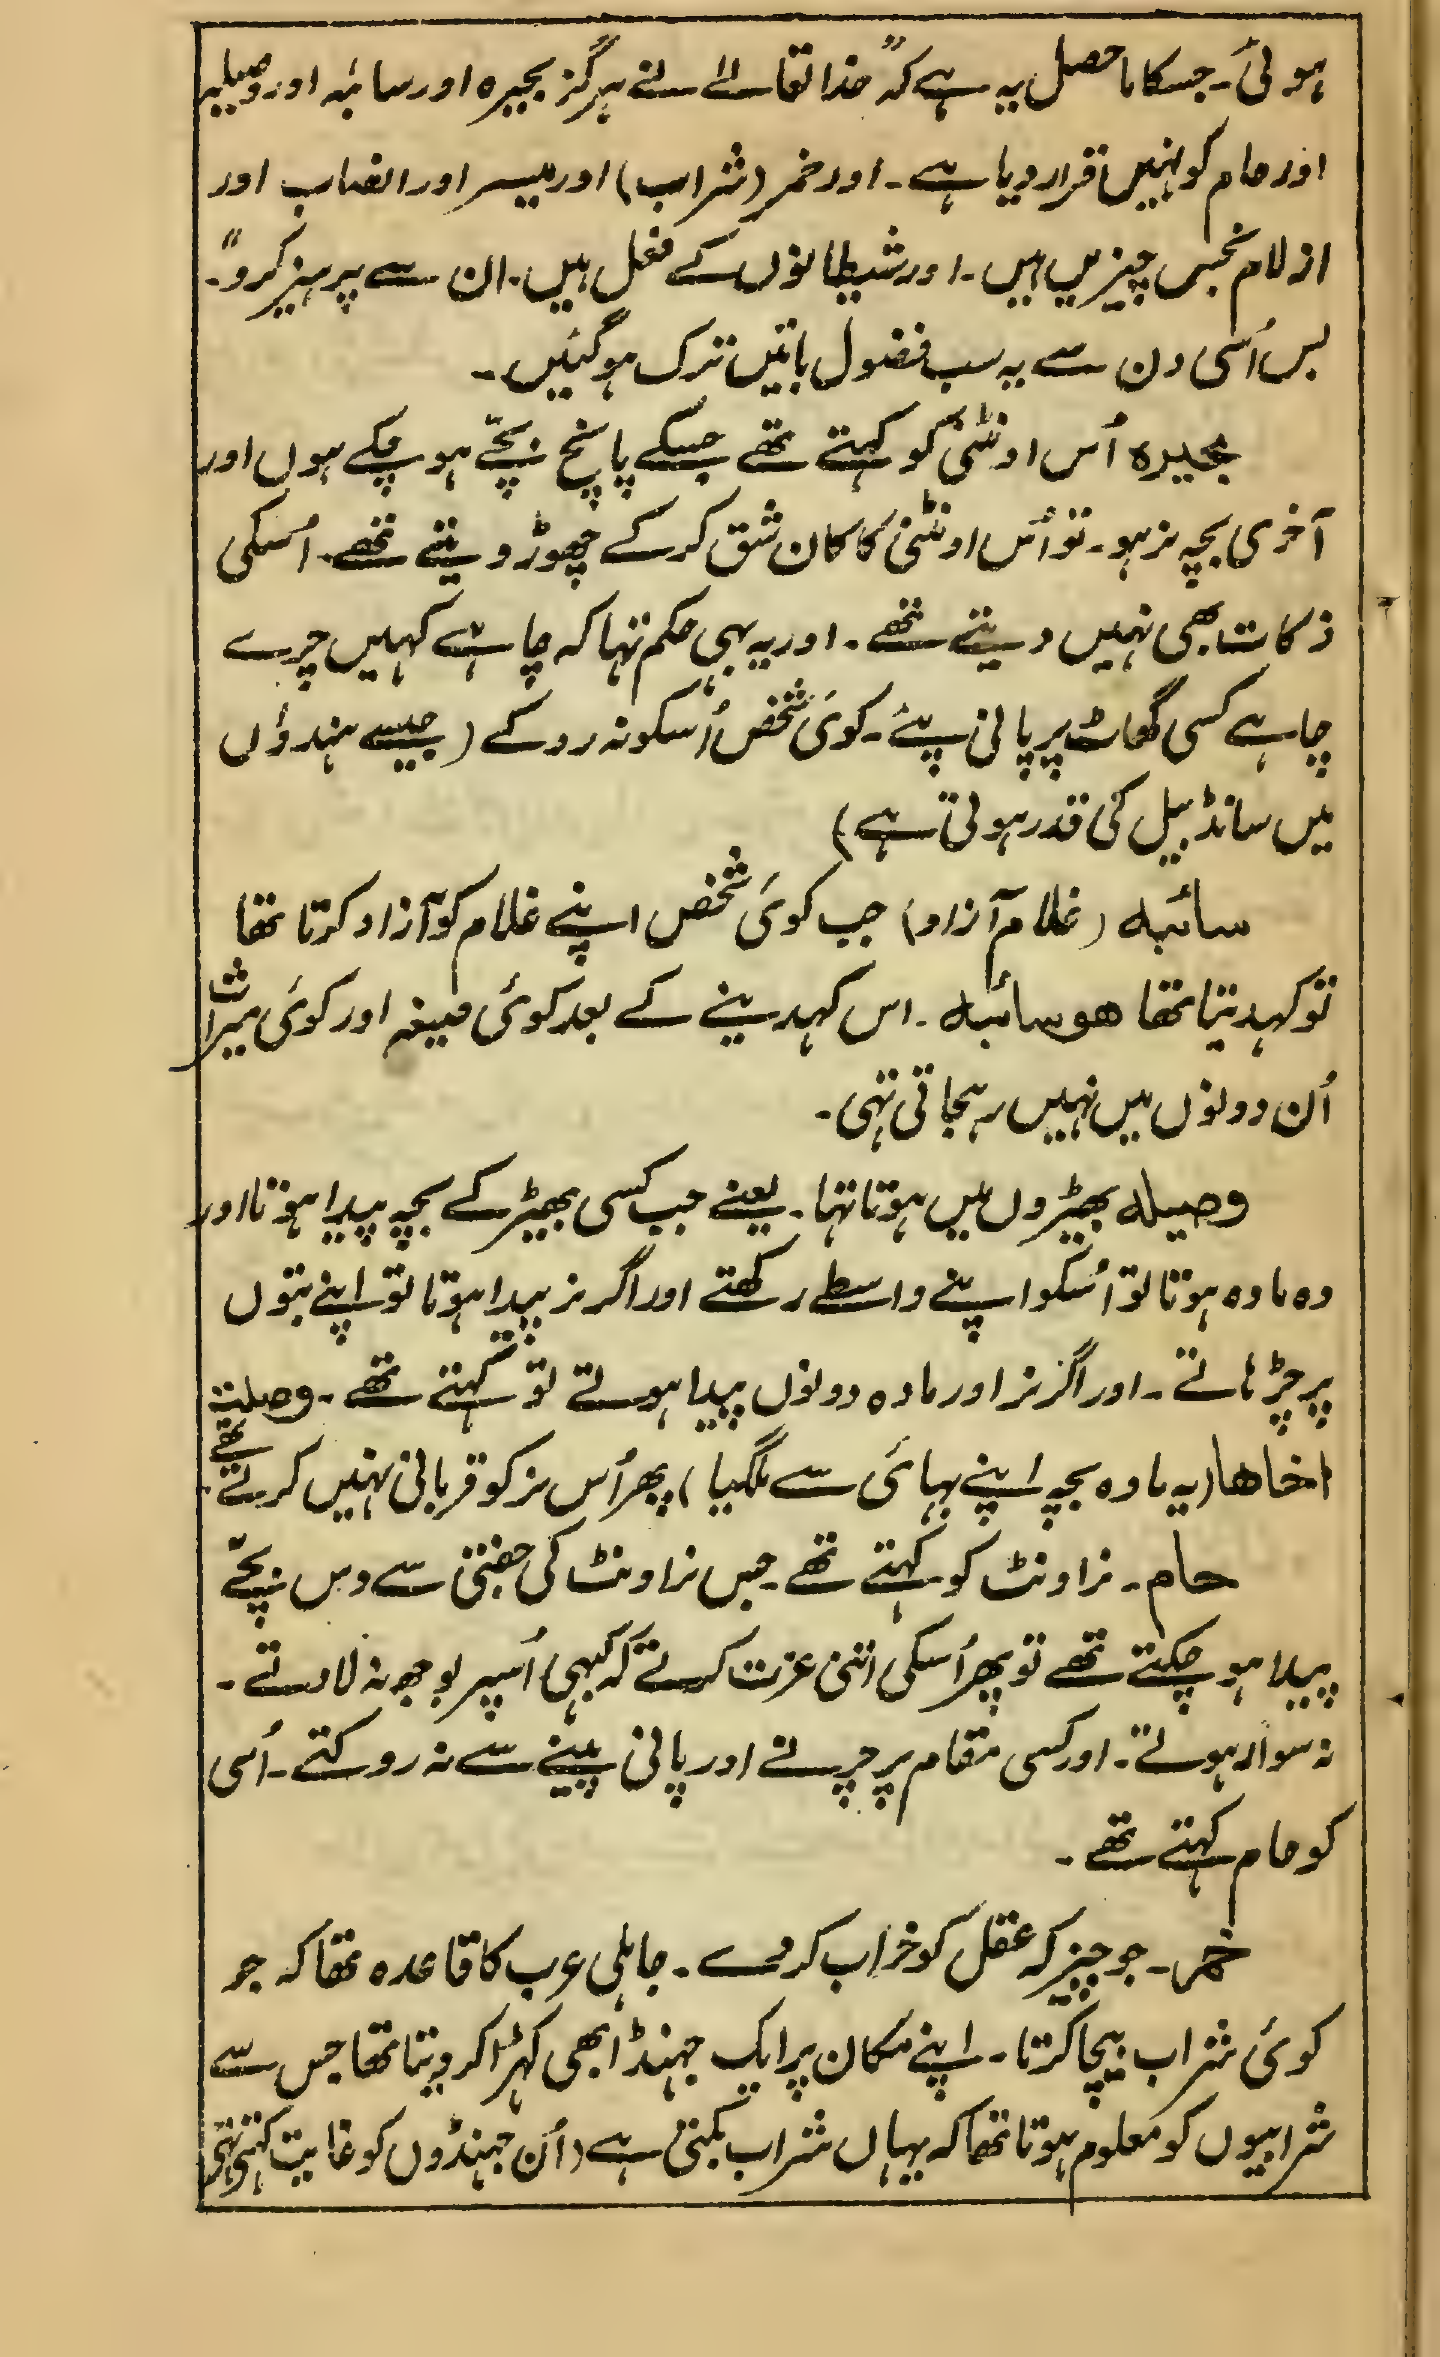 ہوئی۔ جسکا ماحصل یہ ہے کہ "خدا تعالےٰ نے ہرگز بحیرہ اور سائبہ اور وصیلہ
اور حام کو نہیں قرار دیا ہے۔ اور خمر (شراب) اور میسر اور انصاب اور
ازلام نجس چیزیں ہیں۔ اور شیطانوں کے فعل ہیں۔ ان سے پرہیز کرو"۔
بس اُسی دن سے یہ سب فضول باتیں ترک ہوگئیں۔
بحیرہ اُس اونٹنی کو کہتے تھے جسکے پانچ بچّے ہو چکے ہوں اور
آخری بچہ نر ہو۔ تو اُس اونٹنی کا کان شق کر کے چھوڑ دیتے تھے۔ اُسکی
زکات بھی نہیں دیتے تھے۔ اور یہ بہی حکم تہا کہ چاہے کہیں چرے
چاہے کسی گھاٹ پر پانی پیئے۔ کوئی شخص اُسکو نہ روکے (جیسے ہندوٴں
میں سانڈ بیل کی قدر ہوتی ہے)
سائبہ (غلام آزاد) جب کوئی شخص اپنے غلام کو آزاد کرتا تھا
تو کہدیتا تھا ھو سائبہ۔ اس کہدینے کے بعد کوئی صیغہ اور کوئی میراث
اُن دونوں میں نہیں رہجاتی تہی۔
وصیلہ بھیڑوں میں ہوتا تہا۔ یعنے جب کسی بھیڑ کے بچہ پیدا ہوتا اور
وہ مادہ ہوتا تو اُسکو اپنے واسطے رکھتے اور اگر نر پیدا ہوتا تو اپنے بتوں
پر چڑہاتے۔ اور اگر نر اور مادہ دونوں پیدا ہوتے تو کہتے تھے۔ وصلت
اخاھا (یہ مادہ بچہ اپنے بہائی سے ملگیا) پھر اُس نر کو قربانی نہیں کرتے تھے۔
حام۔ نر اونٹ کو کہتے تھے۔ جس نر اونٹ کی جفتی سے دس بچّے
پیدا ہو چکتے تھے تو پھر اُسکی اتنی عزت کرتے کہ کبہی اُسپر بوجھ نہ لادتے۔
نہ سوار ہوتے۔ اور کسی مقام پر چرنے اور پانی پینے سے نہ روکتے۔ اُسی
کو حام کہتے تھے۔
خمر۔ جو چیز کہ عقل کو خراب کر دے۔ جاہلی عرب کا قاعدہ تھا کہ جو
کوئی شراب بیچا کرتا۔ اپنے مکان پر ایک جہنڈا بھی کہڑا کر دیتا تھا جس سے
شرابیوں کو معلوم ہوتا تھا کہ یہاں شراب بکتی ہے (اُن جہنڈوں کو غایت کہتے تہے